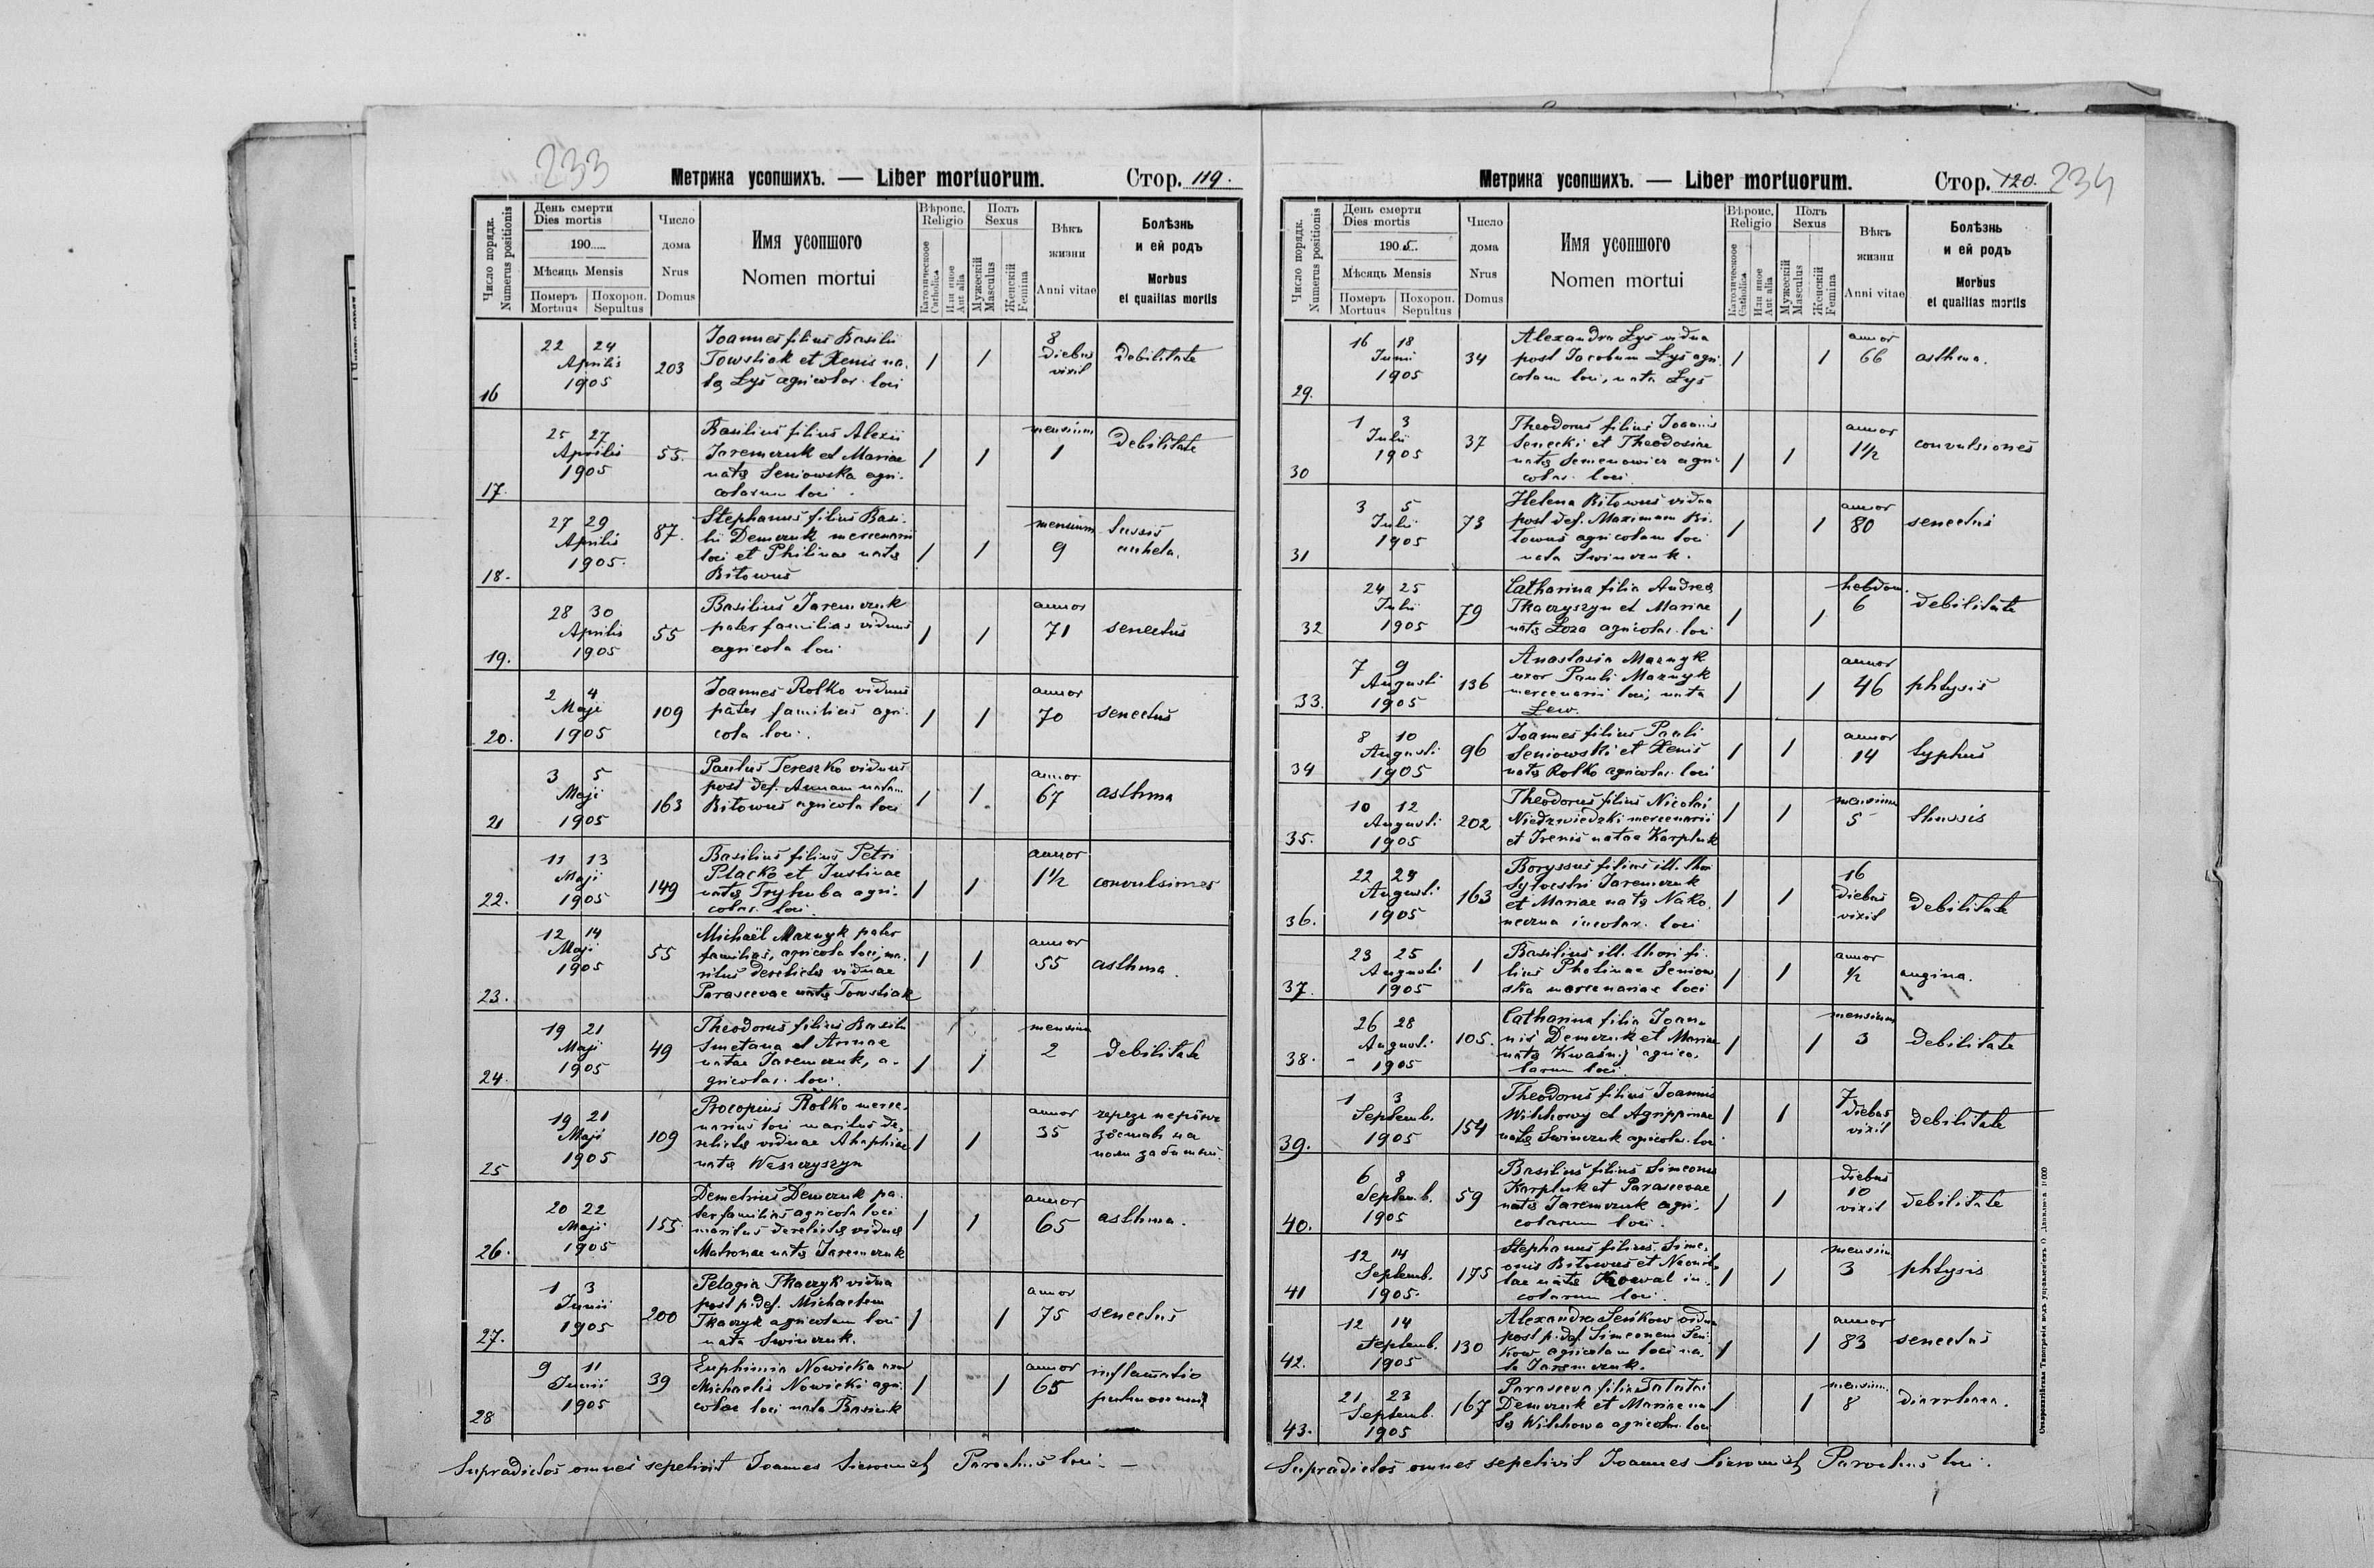 233
Метрика усопшихъ. — Liber mortuorum.
Стор. 119.
Число порядк.
Numerus positionis
День смерти
Dies mortis
190.....
Мѣсяць Mensis
Померъ Mortuus
Похорон. Sepultus
Число дома
Nrus Domus
Имя усопшого
Nomen mortui
Вѣроис. Religio
Католическое Catholica
Или иное Aut alia
Полъ Sexus
Мужескій Masculus
Женскій Femina
Вѣкъ жизни
Anni vitae
Болѣзнь и ей родъ
Morbus et qualitas mortis
16
22 24
Aprilis
1905
203
Joannes filius Basilii
Towstiak et Xenis na-
tę Łyś agricolar. loci
1 1
8
diebus
vixit
Debilitate
17.
25 27
Aprilis
1905
55.
Basilius filius Alexii
Jaremczuk et Mariae
natę Seniowska agri-
colarum loci.
1 1
mensium
1
Debilitate
18.
27 29
Aprilis
1905.
87.
Stephanus filius Basi-
lii Demczuk mercenarii
loci et Philinae natę
Bitowus
1 1
mensium
9
tussis
anhela.
19.
28 30
Aprilis
1905
55
Basilius Jaremczuk
pater familias viduus
agricola loci
1 1
annor
71
senectus
20.
2 4
Maji
1905
109
Joannes Rolko viduus
pater familias agri-
cola loci.
1 1
annor
70
senectus
21
3 5
Maji
1905
163
Paulus Tereszko viduus
post def. Annam natam
Bitowus agricola loci
1 1
annor
67
asthma
22.
11 13
Maji
1905
149
Basilius filius Petri
Placko et Justinae
natę Tryhuba agri-
colar. loci.
1 1
annor
1 1/2
convulsiones
23.
12 14
Maji
1905
55
Michaël Maznyk pater
familias, agricola loci, ma-
ritus derelictę viduae
Parascevae natę Towstiak
1 1
annor
55
asthma.
24.
19 21
Maji
1905
49
Theodorus filius Basilii
Smetana et Annae
natae Jaremczuk, a-
gricolar. loci.
1 1
mensium
2
Debilitate
25
19 21
Maji
1905
109
Procopius Rolko merce-
narius loci maritus de-
relictę viduae Ahaphiae
natę Waszczyszyn
1 1
annor
35
зоставъ на
26.
20 22
Maji
1905
155
Demetrius Demczuk pa-
ter familias agricola loci
maritus derelictę viduę
Matronae natę Jaremczuk
1 1
annor
65
asthma.
27.
1 3
Junii
1905
200
Pelagia Tkaczyk vidua
post p. def. Michaelem
Tkaczyk agricolam loci
nata Swinczuk.
1 1
annor
75
senectus
28
9 11
Junii
1905
39
Euphimia Nowicka uxor
Michaelis Nowicki agri-
colae loci nata Basiuk
1 1
annor
65
inflamatio
pulmonum
Supradictos omnes sepelivit Joannes Parochus loci. —
234
Метрика усопшихъ. — Liber mortuorum.
Стор. 120.
Число порядк.
Numerus positionis
День смерти
Dies mortis
1905..
Мѣсяць Mensis
Померъ Mortuus
Похорон. Sepultus
Число дома
Nrus Domus
Имя усопшого
Nomen mortui
Вѣроис. Religio
Католическое Catholica
Или иное Aut alia
Полъ Sexus
Мужескій Masculus
Женскій Femina
Вѣкъ жизни
Anni vitae
Болѣзнь и ей родъ
Morbus et qualitas mortis
29.
16 18
Junii
1905
34
Alexandra Łyś vidua
post Jacobum Łyś agri-
colam loci, nata Łyś
1 1
annor
66
asthma.
30
1 3
Julii
1905
37
Theodorus filius Joannis
Senecki et Theodosiae
natę Semenowicz agri-
colar. loci
1 1
annor
1 1/2
convulsiones
31
3 5
Julii
1905
73
Helena Bitowus vidua
post def. Maximum Bi-
towus agricolam loci
nata Swinczuk.
1 1
annor
80
senectus
32
24 25
Julii
1905
79
Catharina filia Andreę
Tkaczyszyn et Mariae
natę Łoza agricolar. loci
1 1
hebdom.
6
debilitate
33.
7 9
Augusti
1905
136
Anastasia Maznyk
uxor Pauli Maznyk
mercenarii loci, nata
Łew.
1 1
annor
46
phtysis
34
8 10
Augusti
1905
96
Joannes filius Pauli
Seniowski et Xenis
natę Rolko agricolar. loci
1 1
annor
14
typhus
35.
10 12
Augusti
1905
202
Theodorus filius Nicolai
Niedzwiedzki mercenarii
et Irenis natae Karpluk
1 1
mensium
5
thussis
36.
22 24
Augusti
1905
163
Boryssus filius ill. thori
Sylvestri Jaremczuk
et Mariae natę Nako-
neczna incolar. loci
1 1
16
diebus
vixit
debilitate
37.
23 25
Augusti
1905
1
Basilius ill. thori fi-
lius Photinae Seniow-
ska mercenariae loci
1 1
annor
1/2
angina.
38.
26 28
Augusti
1905
105.
Catharina filia Joan-
nis Demczuk et Mariae
natę Kwaśnij agrico-
larum loci
1 1
mensium
3
Debilitate
39.
1 3
Septemb.
1905
154
Theodorus filius Joannis
Wilchowy et Agrippinae
natę Swinczuk agricolar. loci
1 1
7
diebus
vixit
debilitate
40.
6 8
Septemb.
1905
59
Basilius filius Simeonis
Karpluk et Parascevae
natę Jaremczuk agri-
colarum loci.
1 1
diebus
10
vixit
debilitate
41
12 14
Septemb.
1905
175
Stephanus filius Sime-
onis Bitowus et
natę Kowal in-
colarum loci.
1 1
mensium
3
phtysis
42.
12 14
Septemb.
1905
130
Alexandra Seńkow vidua
post p. def. Simeonem Seń-
kow agricolam loci na-
ta Jaremczuk.
1 1
annor
83
senectus
43.
21 23
Septemb.
1905
167
Parasceva filia
Demczuk et Mariae na-
tę Wilchowa agricolar. loci
1 1
mensium
8
diarrhaea.
Supradictos omnes sepelivit Joannes Parochus loci.